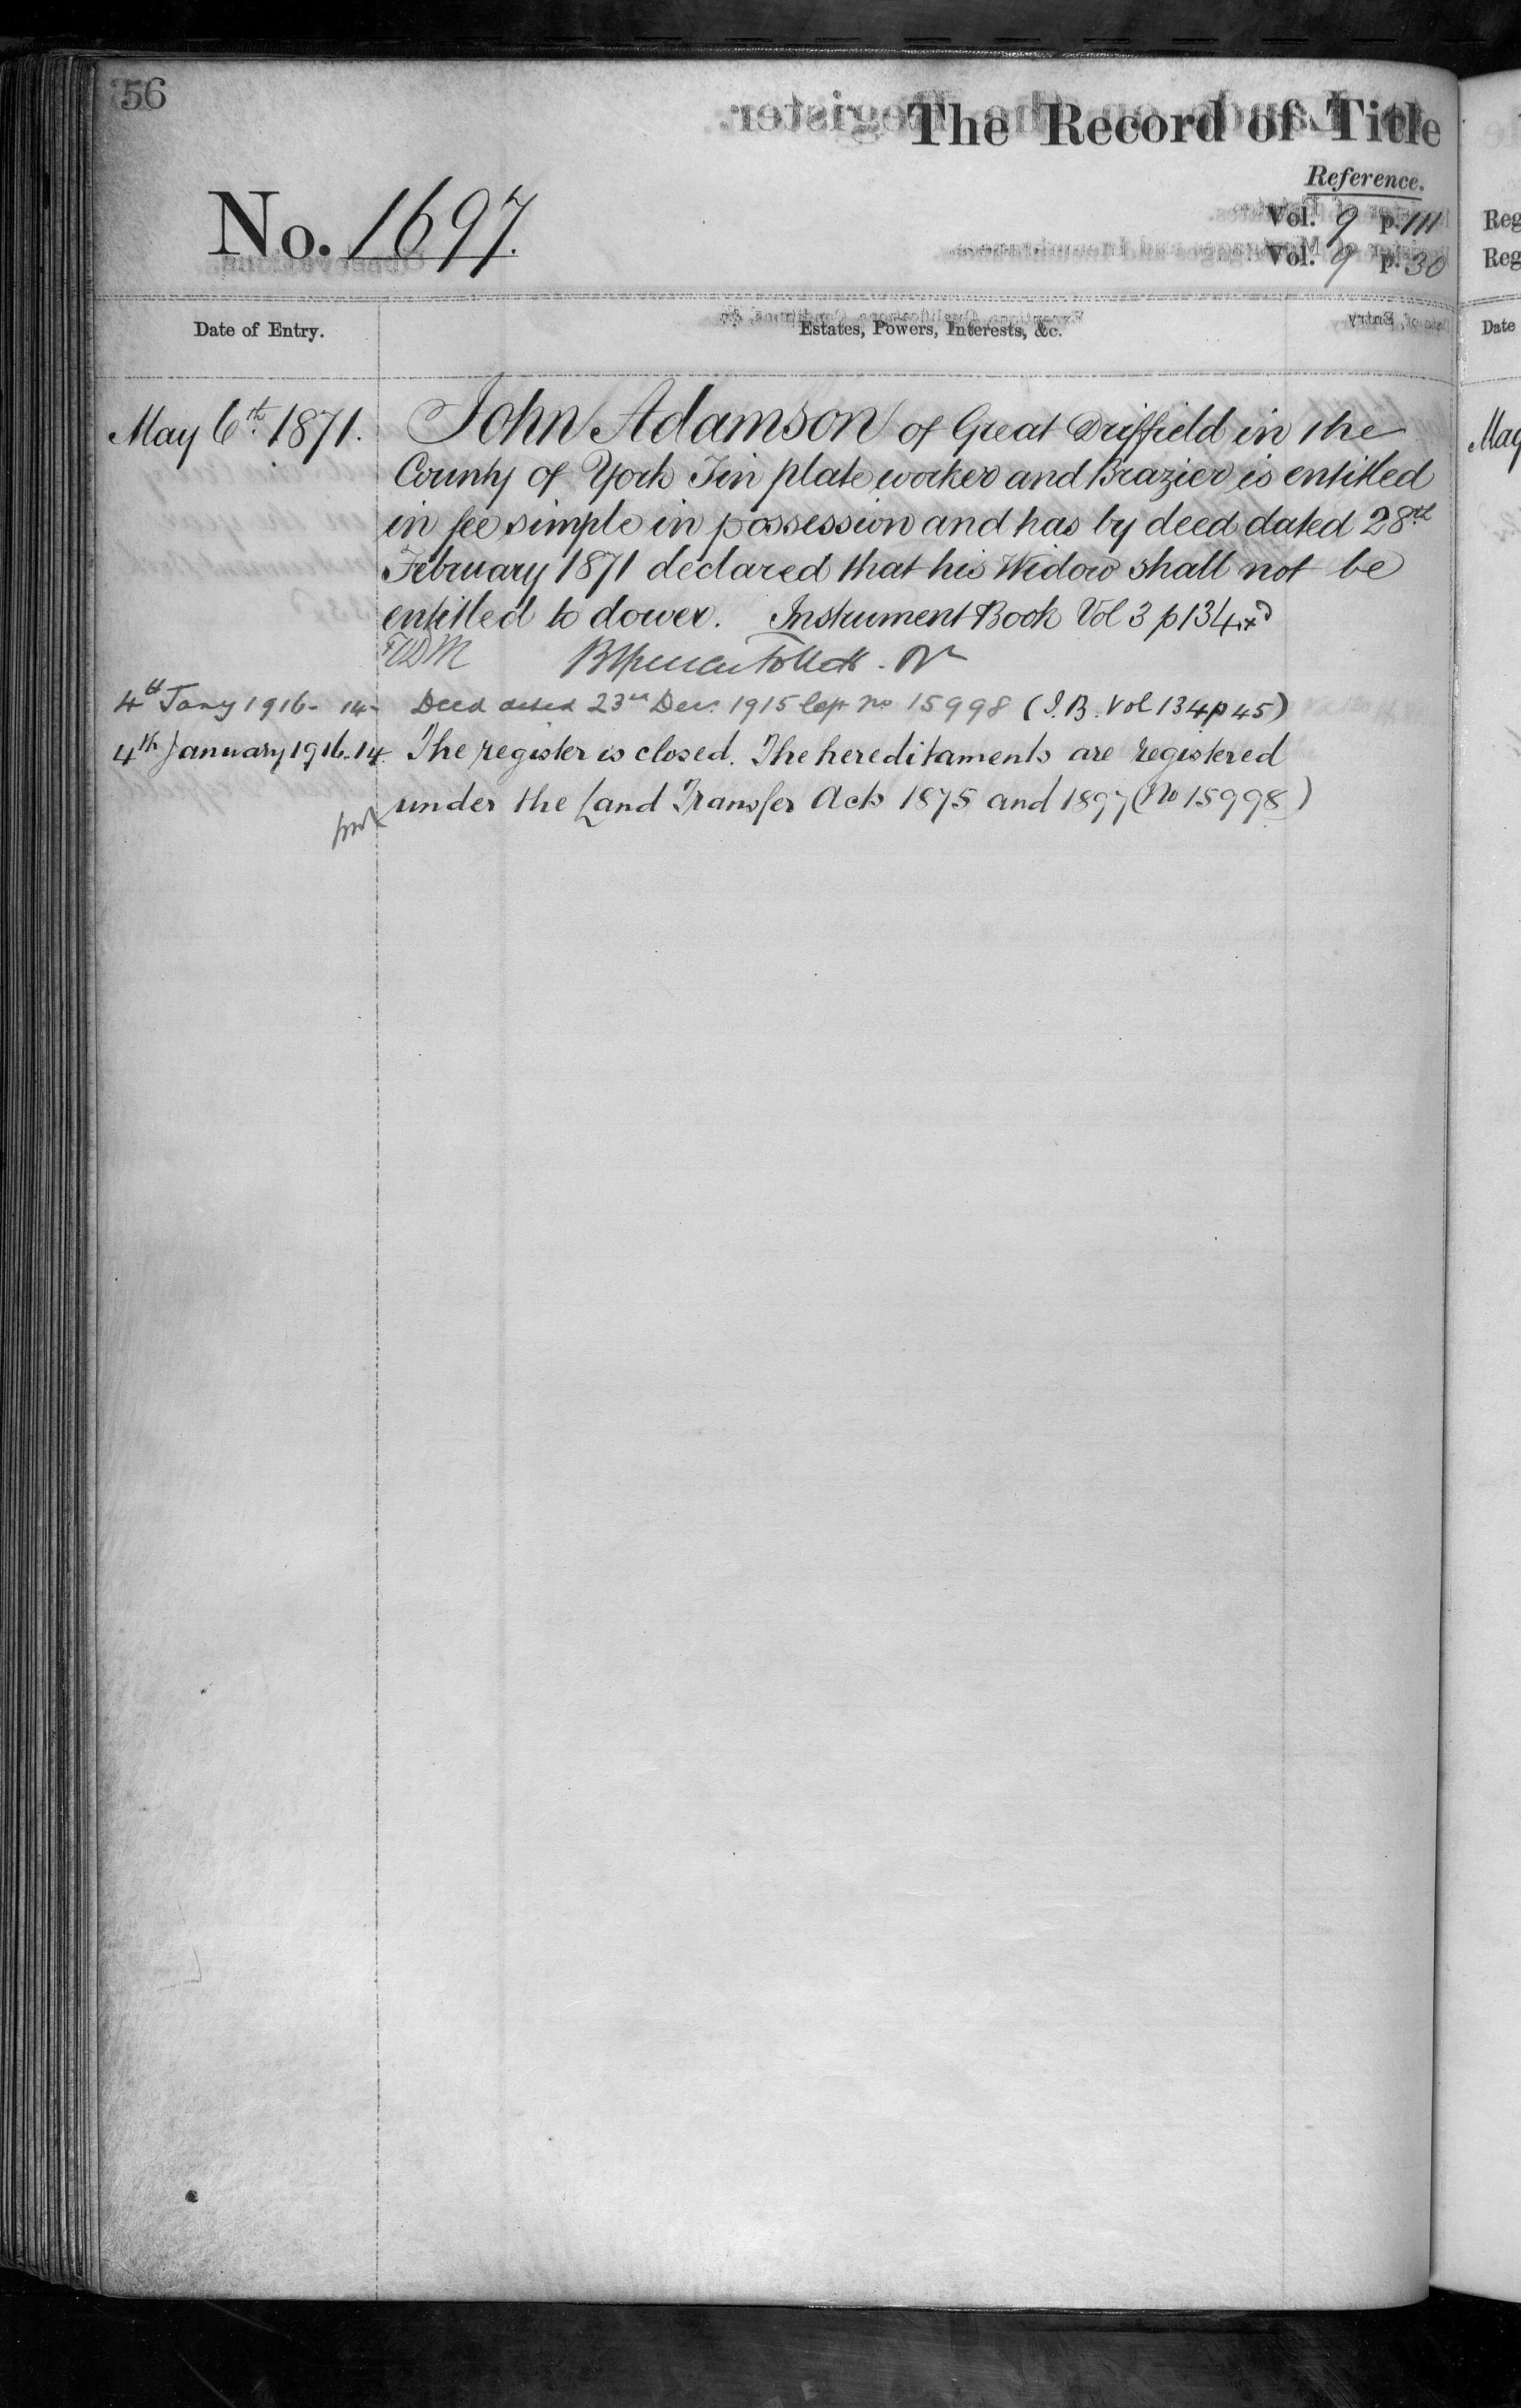 56
The Record of Title
Reference.
No. 1697.
Vol. 9 p. 111
Vol. 9 p. 30
Reg
Reg
Date of Entry.
Estates, Powers, Interests, &c.
Date
May 6th. 1871.
John Adamson of Great Driffield in the
County of York Tin plate worker and Brazier is entitled
in fee simple in possession and has by deed dated 28th
February 1871 declared that his Widow shall not be
entitled to dower. Instrument Book Vol 3 p 134
May
4th Jany 1916 - 14 - Deed dated 23rd Dec. 1915 no 15998 (I.B. Vol 134 p 45)
4th January 1916 - 14. The register is closed. The hereditaments are registered
under the Land Transfer Acts 1875 and 1897 (No 15998)